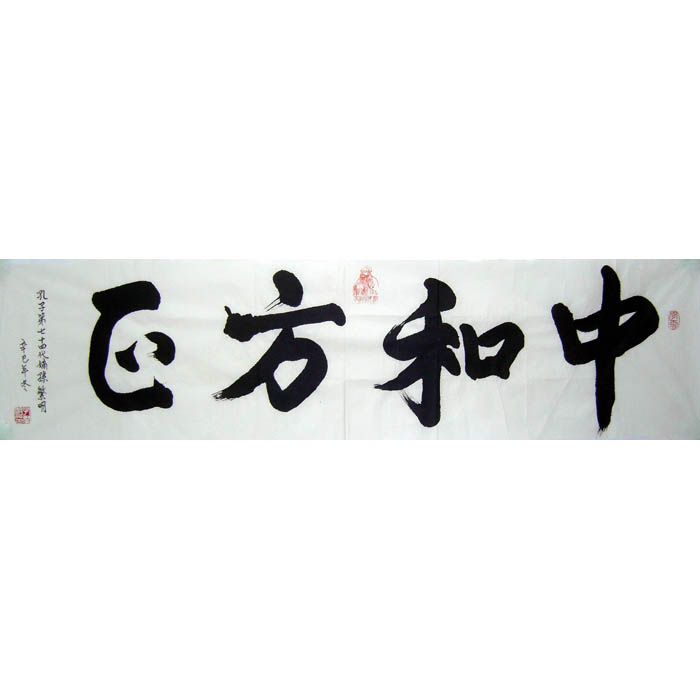 中和方正
孔子第七十四代嫡孫繁明
辛巳年冬